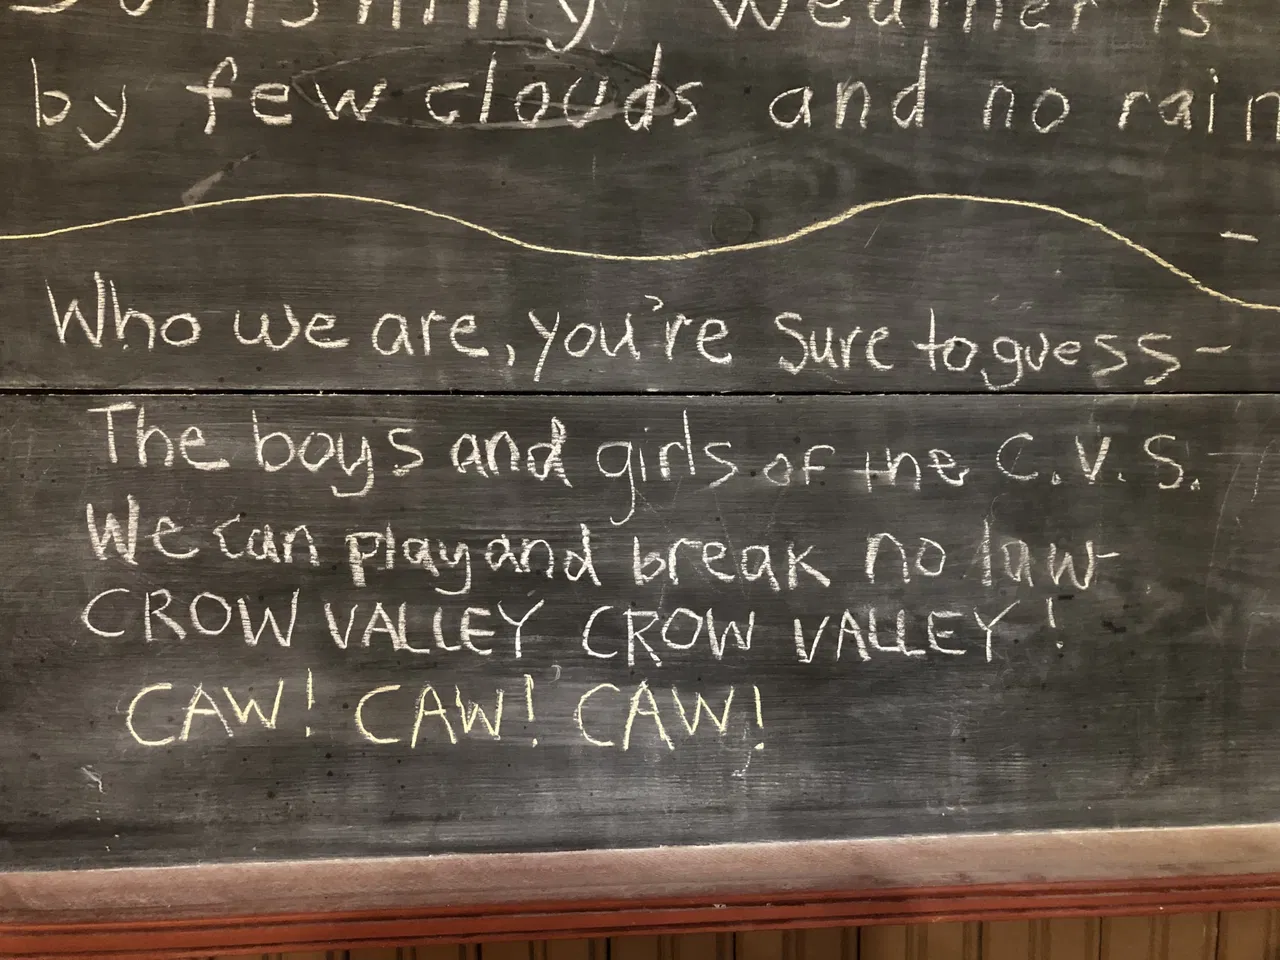 weather is
by few clouds and no rain
Who we are, you're sure to guess-
The boys and girls of the C.V.S.
We can play and break no law-
CROW VALLEY CROW VALLEY!
CAW! CAW! CAW!